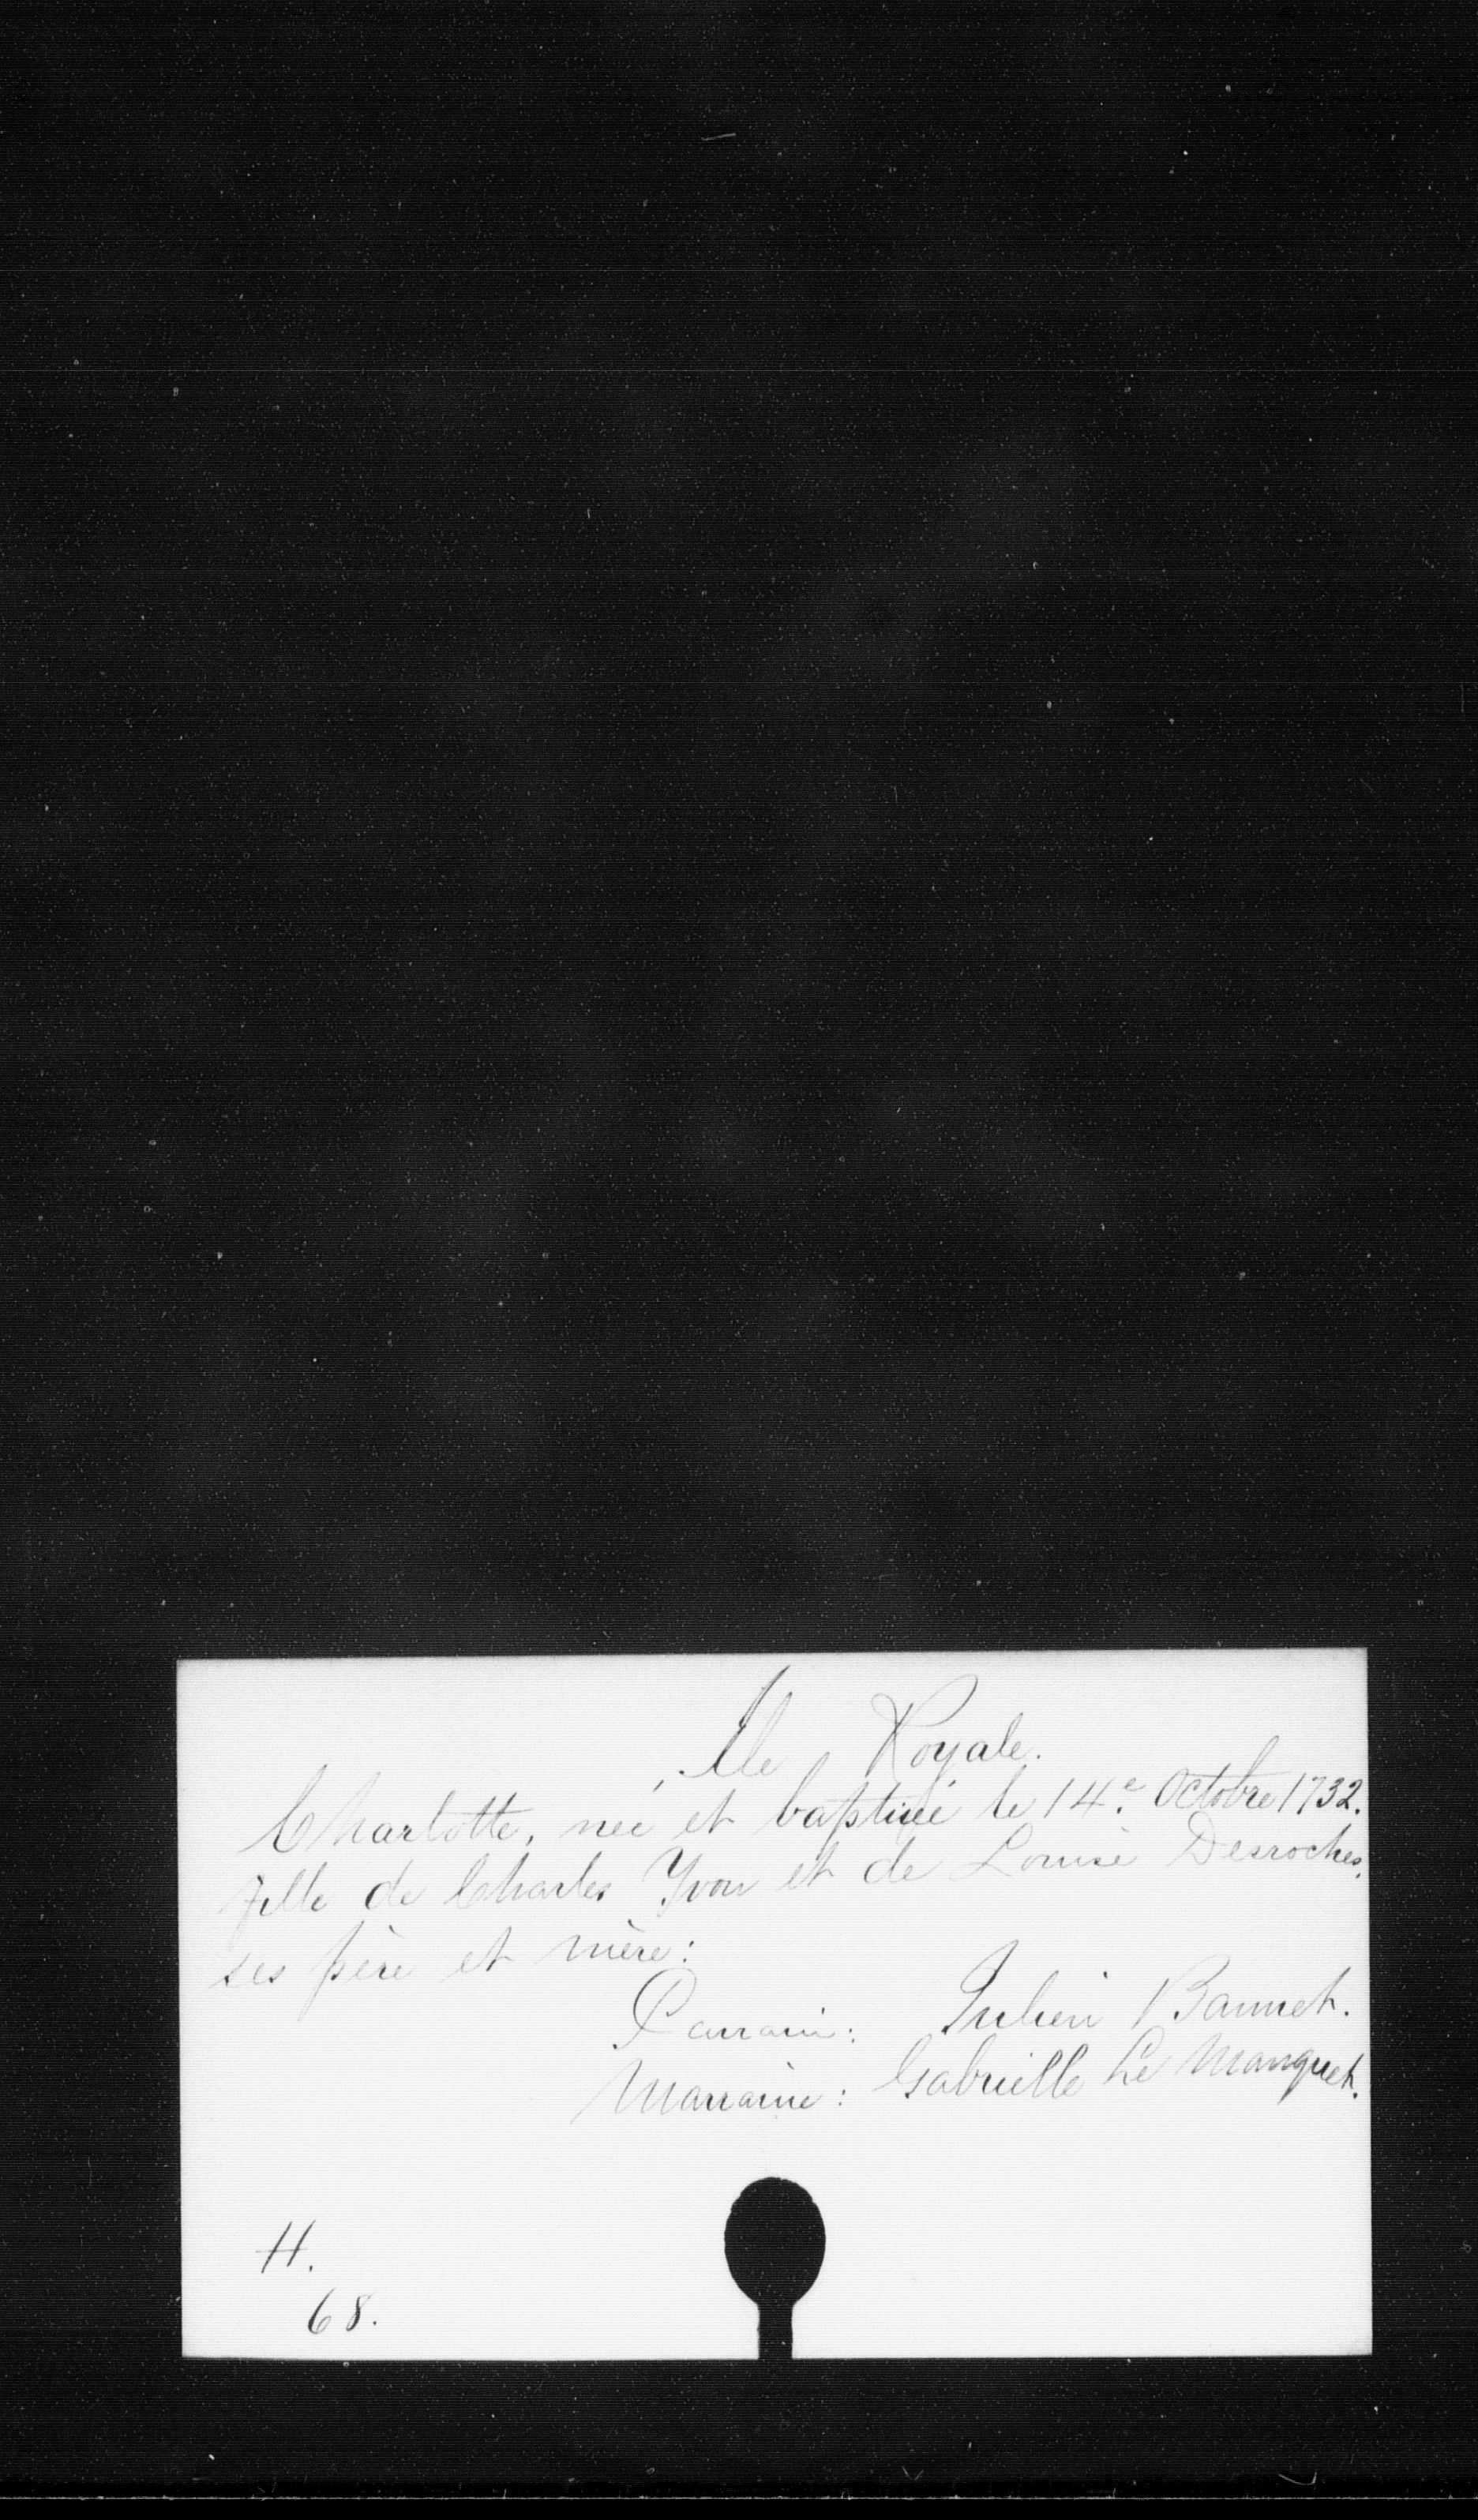 Ile Royale.
Charlotte, née et baptisée le 14.e Octobre 1732.
fille de Charles Yvon et de Louise Desroches,
ses père et mère:
Parrain: Julien
Marraine: Gabrielle Le Manquet.
H.
68.